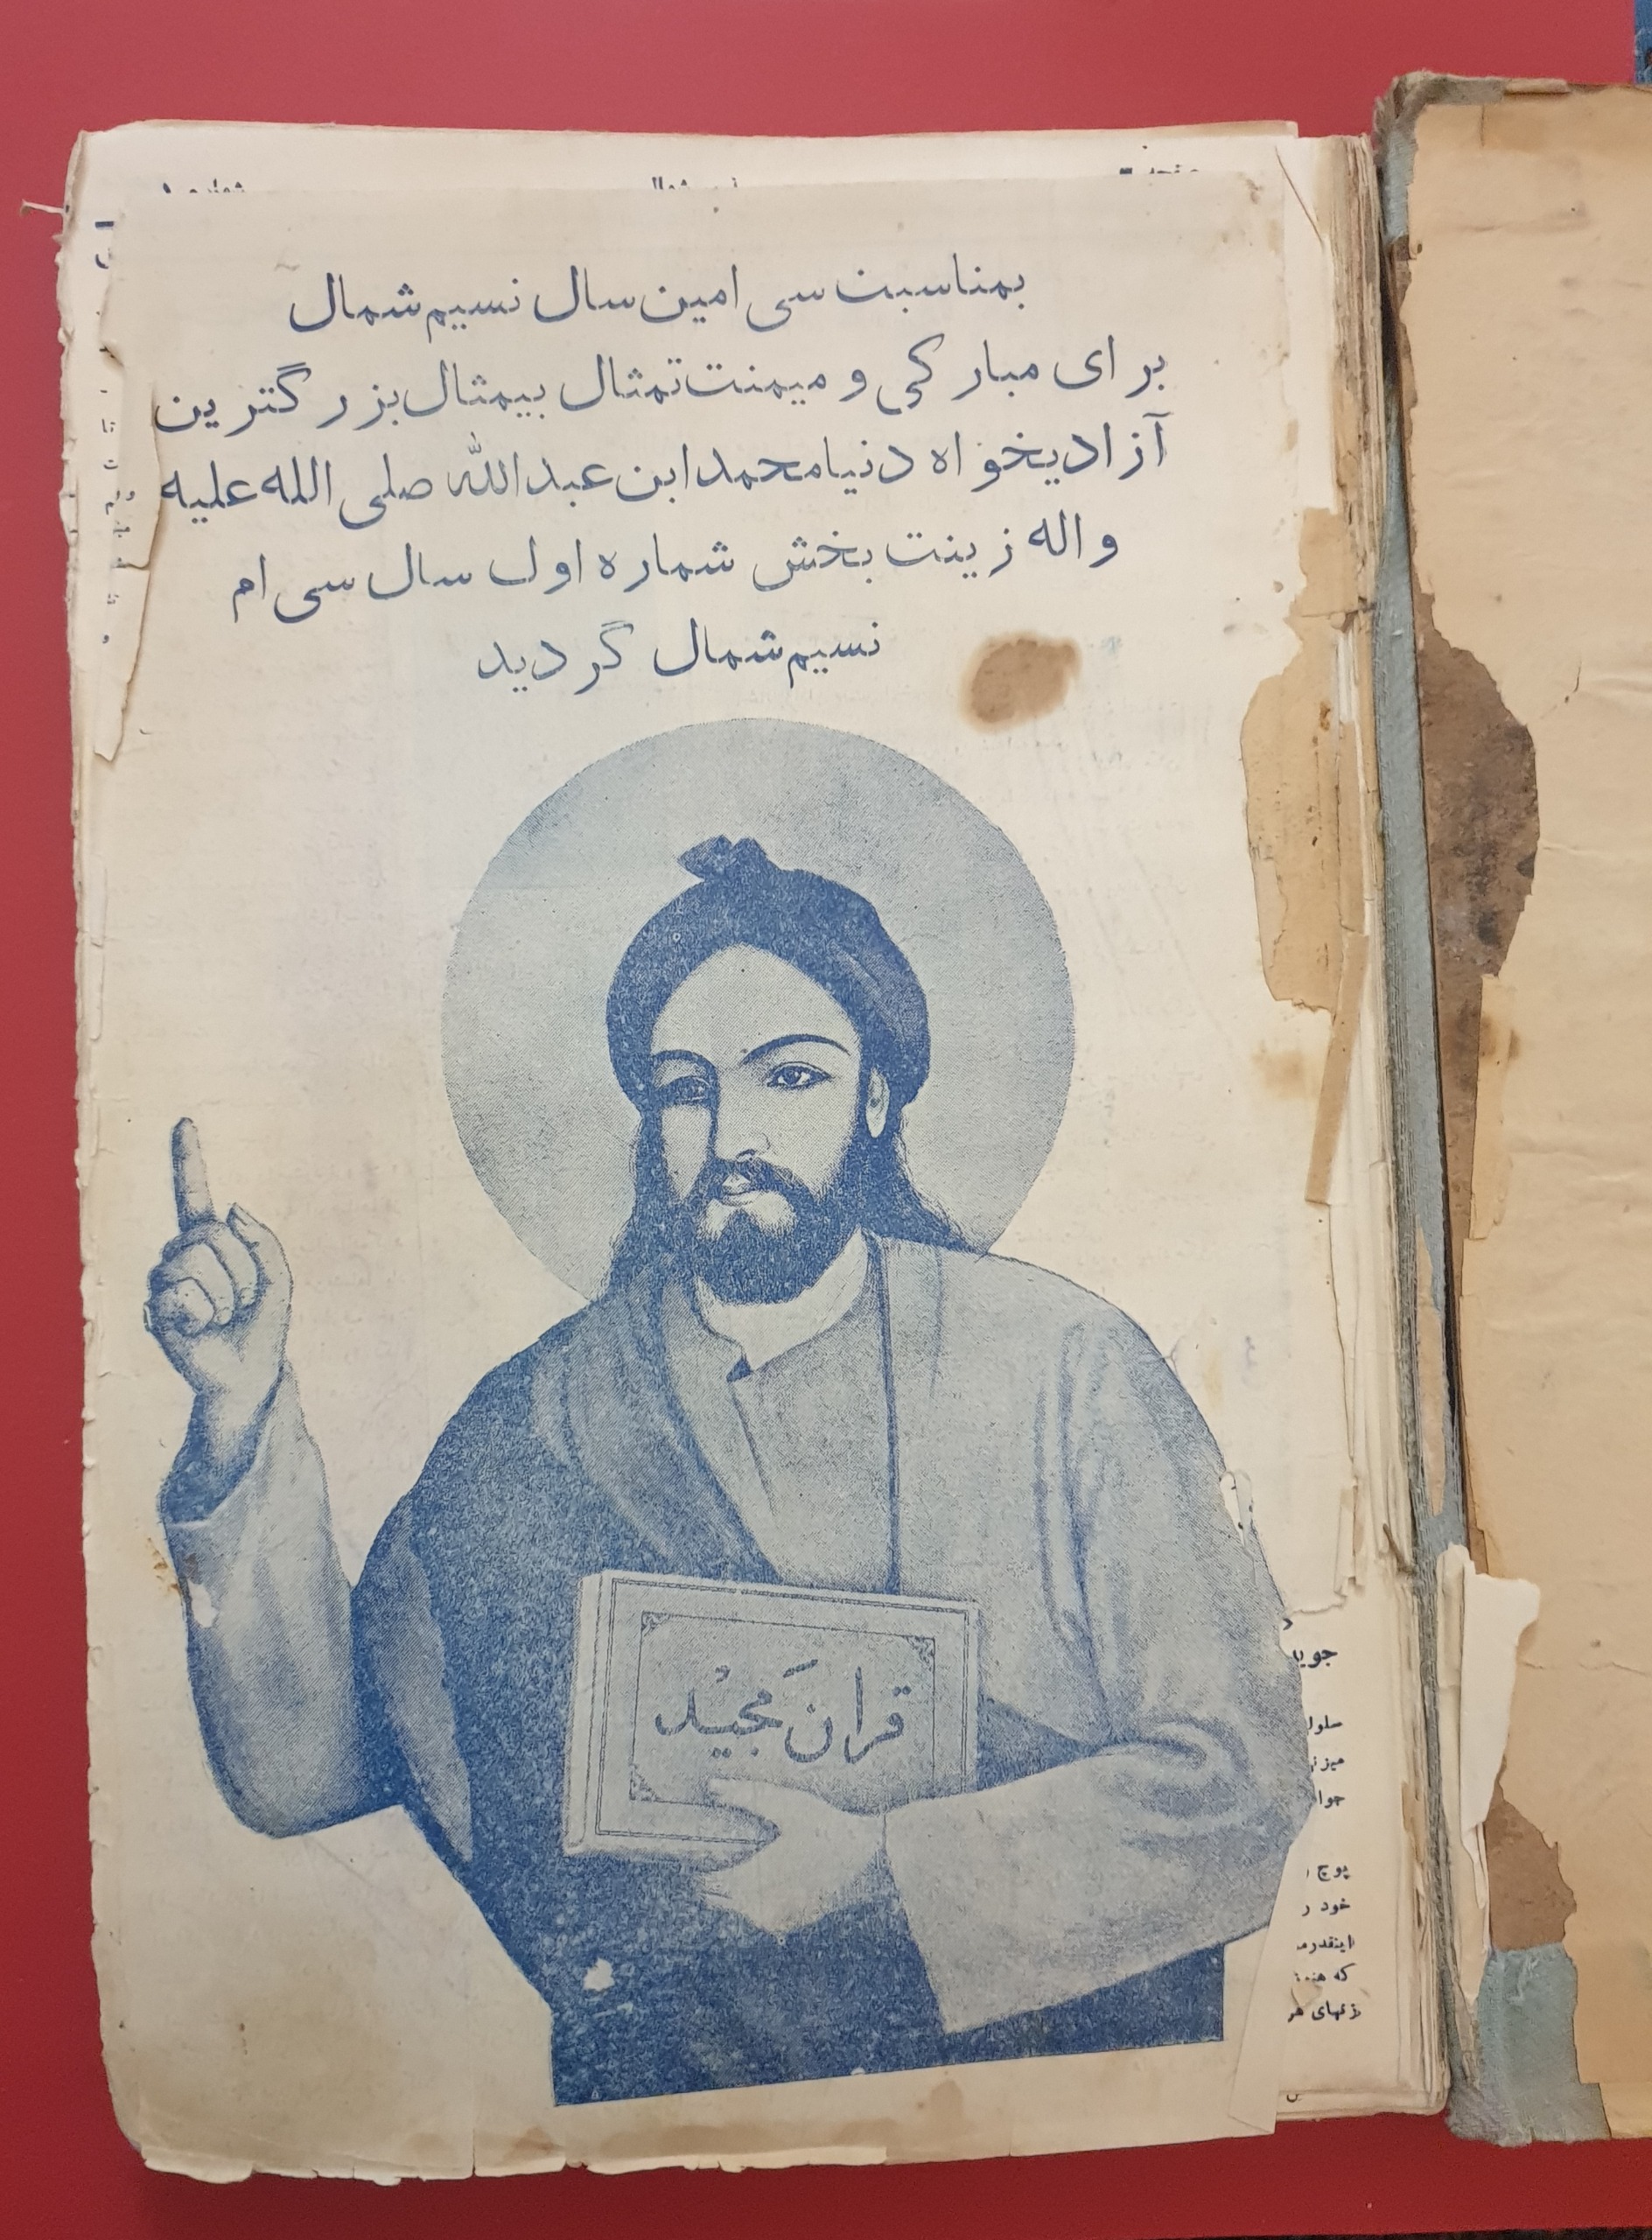 بمناسبت سی امین سال نسیم شمال
برای مبارکی و میمنت تمثال بیمثال بزرگترین
آزادیخواه دنیا محمد ابن عبدالله صلی الله علیه
و اله زینت بخش شماره اول سال سی ام
نسیم شمال گردید
قرآن مجید
جوید
سلول
حوا
پوچ
خود ر
اینقدرم
که هنو